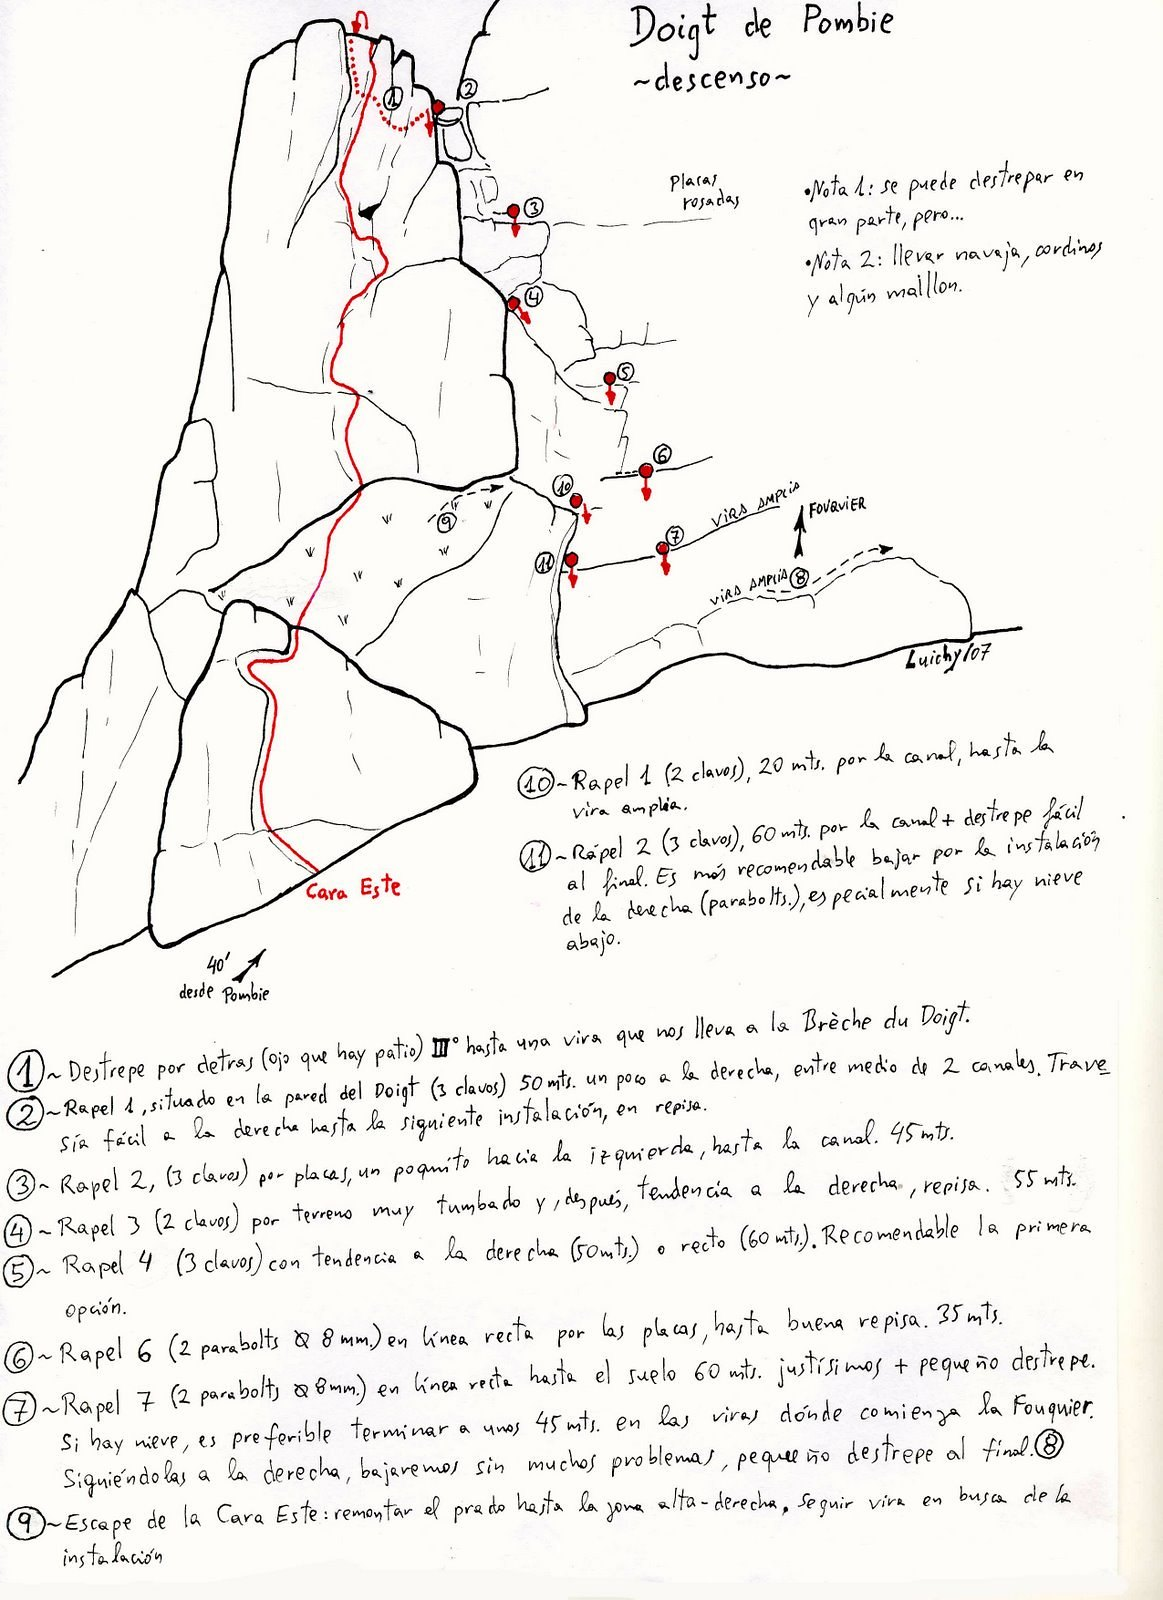 Doigt de Pombie
~descenso~
②
①
③
Placas
rosadas
•Nota 1: se puede destrepar en
gran parte, pero...
•Nota 2: llevar navaja, cordinos
y algún maillon.
④
⑤
⑥
⑩
⑨
⑦
VIRA AMPLIA
FOUQUIER
⑪
VIRA AMPLIA ⑧
Luichy/07
⑩~Rapel 1 (2 clavos), 20 mts. por la canal, hasta la
vira amplia.
⑪~Rápel 2 (3 clavos), 60 mts. por la canal + destrepe fácil
al final. Es más recomendable bajar por la instalación
de la derecha (parabolts.), especialmente si hay nieve
abajo.
Cara Este
40'
desde Pombie
①~Destrepe por detras (ojo que hay patio) III° hasta una vira que nos lleva a la Brèche du Doigt.
②~Rapel 1, situado en la pared del Doigt (3 clavos) 50 mts. un poco a la derecha, entre medio de 2 canales. Trave
sía fácil a la derecha hasta la siguiente instalación, en repisa.
③~Rapel 2, (3 clavos) por placas, un poquito hacia la izquierda, hasta la canal. 45 mts.
④~Rapel 3 (2 clavos) por terreno muy tumbado y, después, tendencia a la derecha, repisa. 55 mts.
⑤~Rapel 4 (3 clavos) con tendencia a la derecha (50 mts.) o recto (60 mts.). Recomendable la primera
opción.
⑥~Rapel 6 (2 parabolts Ø 8 mm.) en línea recta por las placas, hasta buena repisa. 35 mts.
⑦~Rapel 7 (2 parabolts Ø 8 mm.) en línea recta hasta el suelo 60 mts. justísimos + pequeño destrepe.
Si hay nieve, es preferible terminar a unos 45 mts. en las viras dónde comienza la Fouquier.
Siguiéndolas a la derecha, bajaremos sin muchos problemas, pequeño destrepe al final. ⑧
⑨~Escape de la Cara Este: remontar el prado hasta la zona alta-derecha. Seguir vira en busca de la
instalación